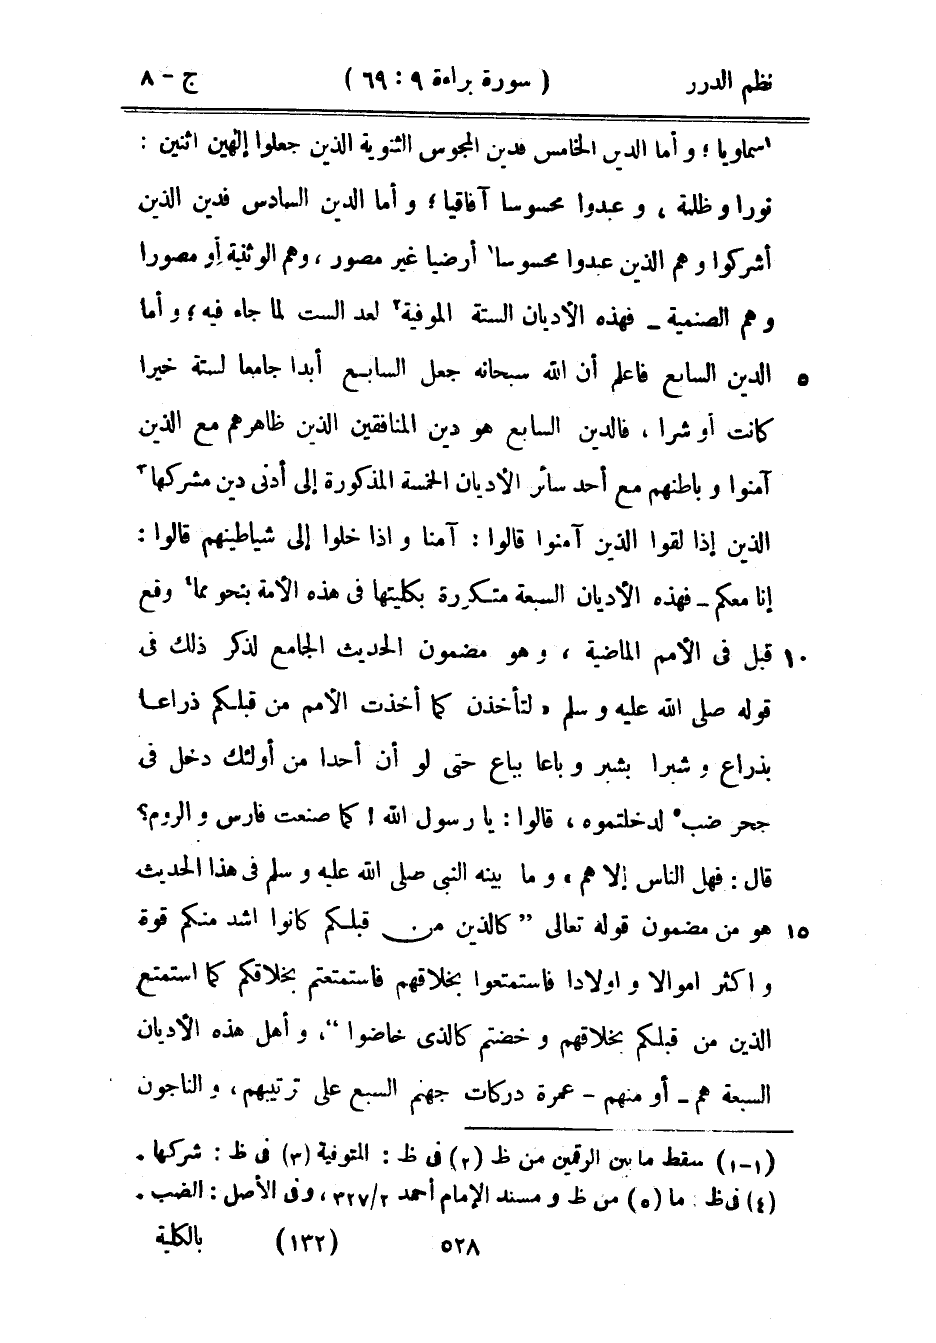 نظم الدرر ( سورة براءة ٩ : ٦٩ ) ج - ٨
١سماويا ؛ و أما الدين الخامس فدين المجوس الثنوية الذين جعلوا إلٰهين اثنين :
نورا و ظلمة ، و عبدوا محسوسا آفاقيا ؛ و أما الدين السادس فدين الذين
أشركوا و هم الذين عبدوا محسوسا١ أرضيا غير مصور ، وهم الوثنية أو مصورا
و هم الصنمية ــ فهذه الأديان الستة الموفية٢ لعد الست لما جاء فيه ؛ و أما
٥ الدين السابع فاعلم أن الله سبحانه جعل السابع أبدا جامعا لستة خيرا
كانت أو شرا ، فالدين السابع هو دين المنافقين الذين ظاهرهم مع الذين
آمنوا و باطنهم مع أحد سائر الأديان الخمسة المذكورة إلى أدنى دين مشركها٣
الذين إذا لقوا الذين آمنوا قالوا : آمنا و اذا خلوا إلى شياطينهم قالوا :
إنا معكم ــ فهذه الأديان السبعة متكررة بكليتها فى هذه الأمة بنحو مما٤ وقع
١٠ قبل فى الأمم الماضية ، و هو مضمون الحديث الجامع لذكر ذلك فى
قوله صلى الله عليه و سلم « لتأخذن كما أخذت الأمم من قبلكم ذراعا
بذراع و شبرا بشبر و باعا بباع حتى لو أن أحدا من أولئك دخل فى
جحر ضب٥ لدخلتموه ، قالوا : يا رسول الله ! كما صنعت فارس و الروم ؟
قال : فهل الناس إلا هم » و ما بينه النبى صلى الله عليه و سلم فى هذا الحديث
١٥ هو من مضمون قوله تعالى ” كالذين من قبلكم كانوا اشد منكم قوة
و اكثر اموالا و اولادا فاستمتعوا بخلاقهم فاستمتعتم بخلاقكم كما استمتع
الذين من قبلكم بخلاقهم و خضتم كالذى خاضوا “، و أهل هذه الأديان
السبعة هم ــ أو منهم - عمرة دركات جهنم السبع على ترتيبهم ، و الناجون
(١-١) سقط ما بين الرقمين من ظ (٢) فى ظ : المتوفية (٣) فى ظ : شركها .
(٤) فى ظ : ما (٥) من ظ و مسند الإمام أحمد ٢/٣٢٧ ، وفى الأصل : الضب .
٥٢٨ (١٣٢) بالكلية